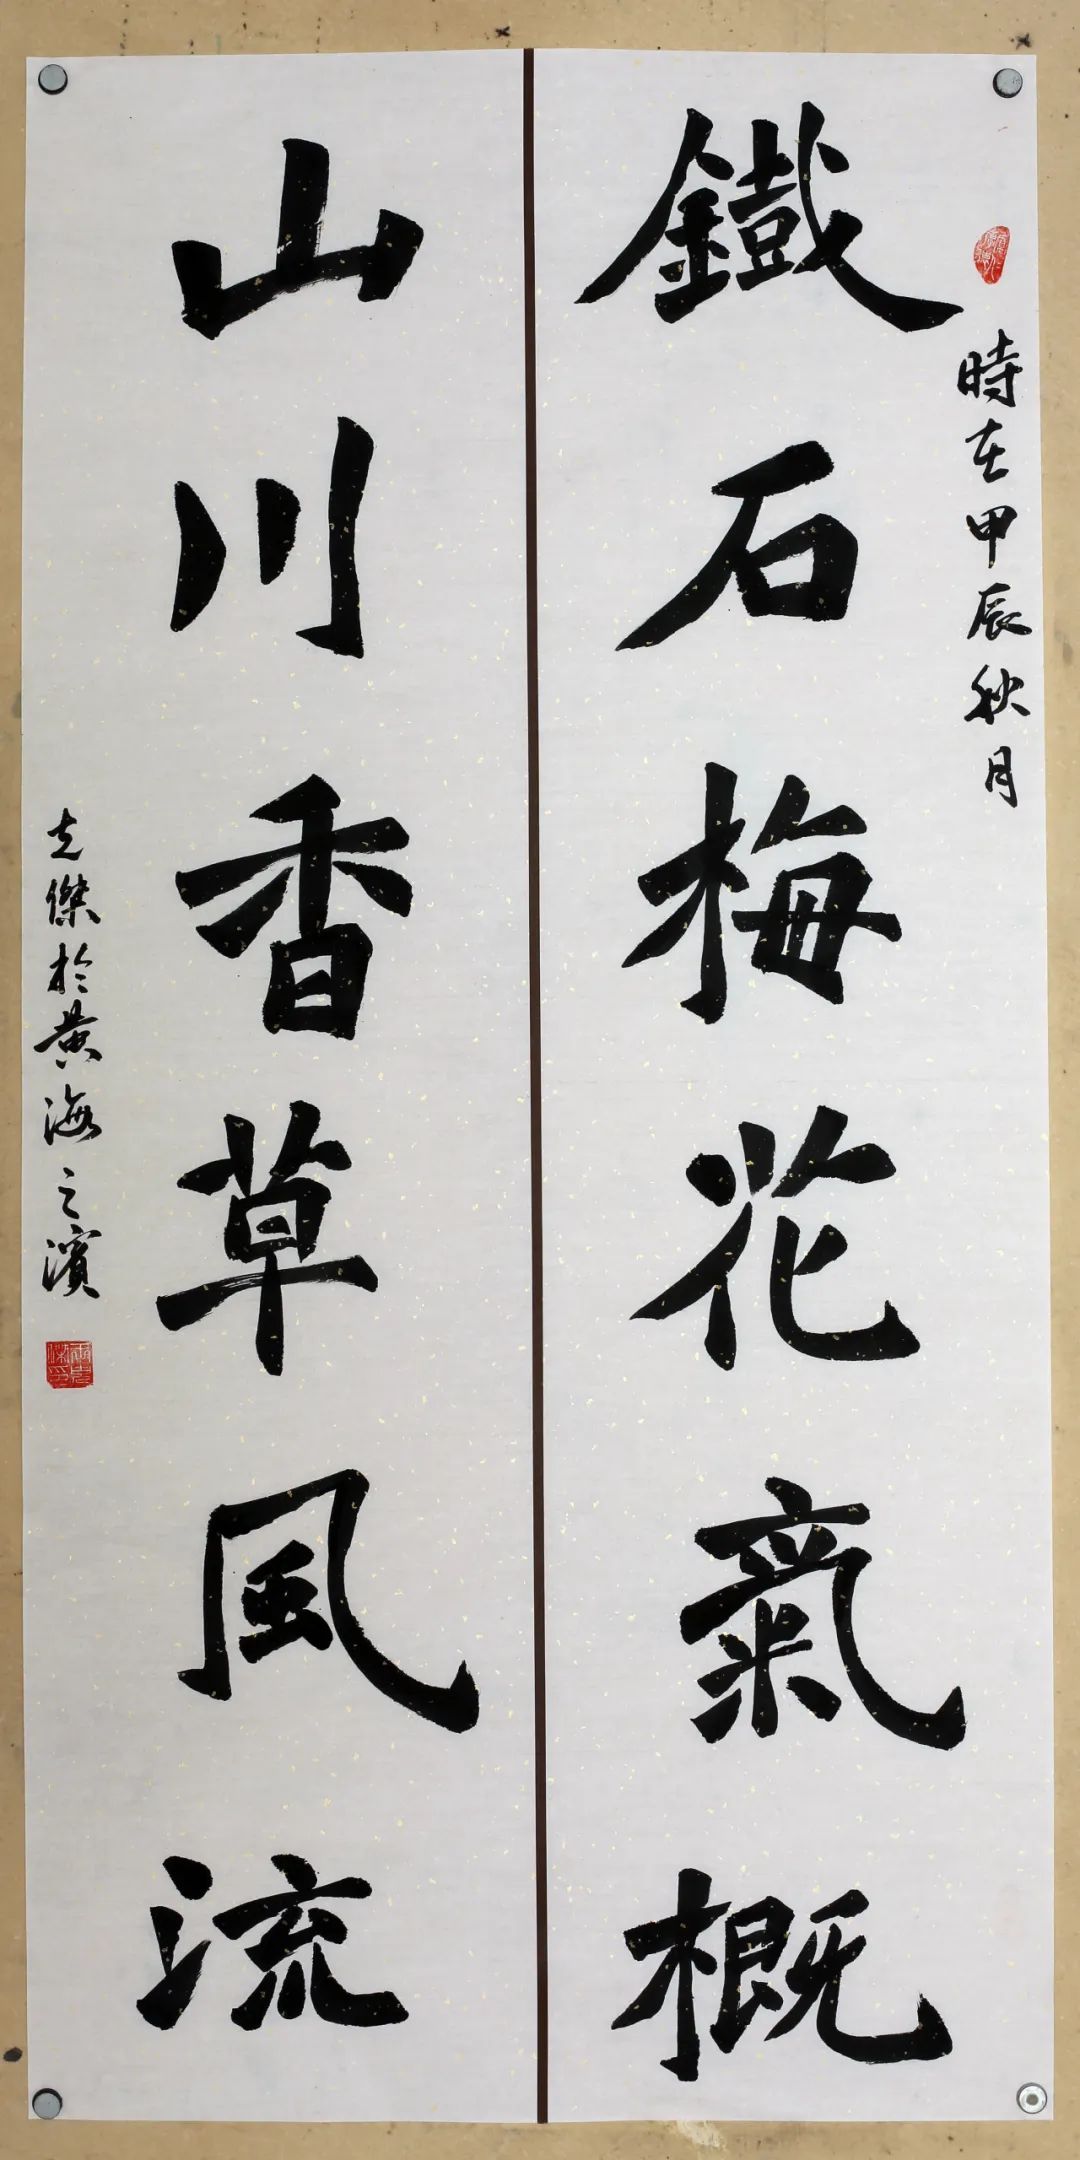 鐵石梅花氣概
時在甲辰秋月
山川香草風流
於黄海之濱